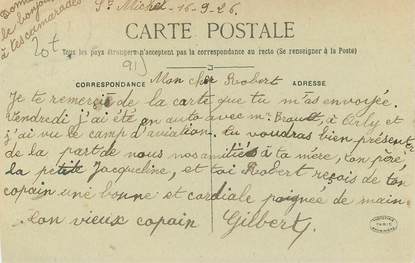 Donne
le bonjour
à tes camarades
St Michel - 16-9-26
CARTE POSTALE
Tous les pays étrangers n'acceptent pas la correspondance au recto (Se renseigner à la Poste)
CORRESPONDANCE
ADRESSE
Mon cher Robert
Je te remercie de la carte que tu m'as envoyée.
Vendredi j'ai été en auto avec Mr Brault, à Orly et
j'ai vu le camp d'aviation. tu voudras bien présenter
de la part de nous nos amitiés à ta mère, ton père
la petite Jacqueline, et toi Robert reçois de ton
copain une bonne et cordiale poignée de main
ton vieux copain Gilbert